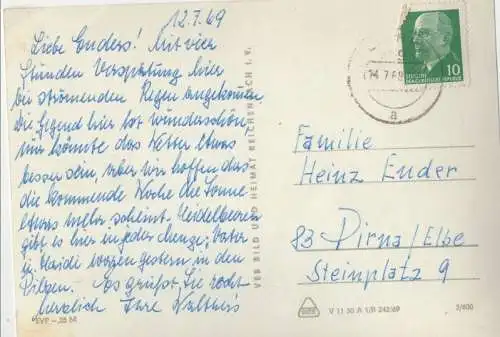 12.7.69
Liebe Enders! Mit vier
Stunden Verspätung hier
bei strömendem Regen angekommen
Die Gegend hier ist wunderschön
nur könnte das Wetter etwas
besser sein, aber wir hoffen das
die kommende Woche die Sonne
etwas mehr scheint. Heidelbeeren
gibt es hier in jeder Menge, Vater
u. Heidi waren gestern in den
Pilzen. Es grüßt Sie recht
herzlich Ihre
EVP –,25 M
VEB BILD UND HEIMAT REICHENBACH I. V.
10
DEUTSCHE DEMOKRATISCHE REPUBLIK
a
Familie
Heinz Ender
83 Pirna/Elbe
Steinplatz 9
V 11 50 A 1/B 242/69
3/600